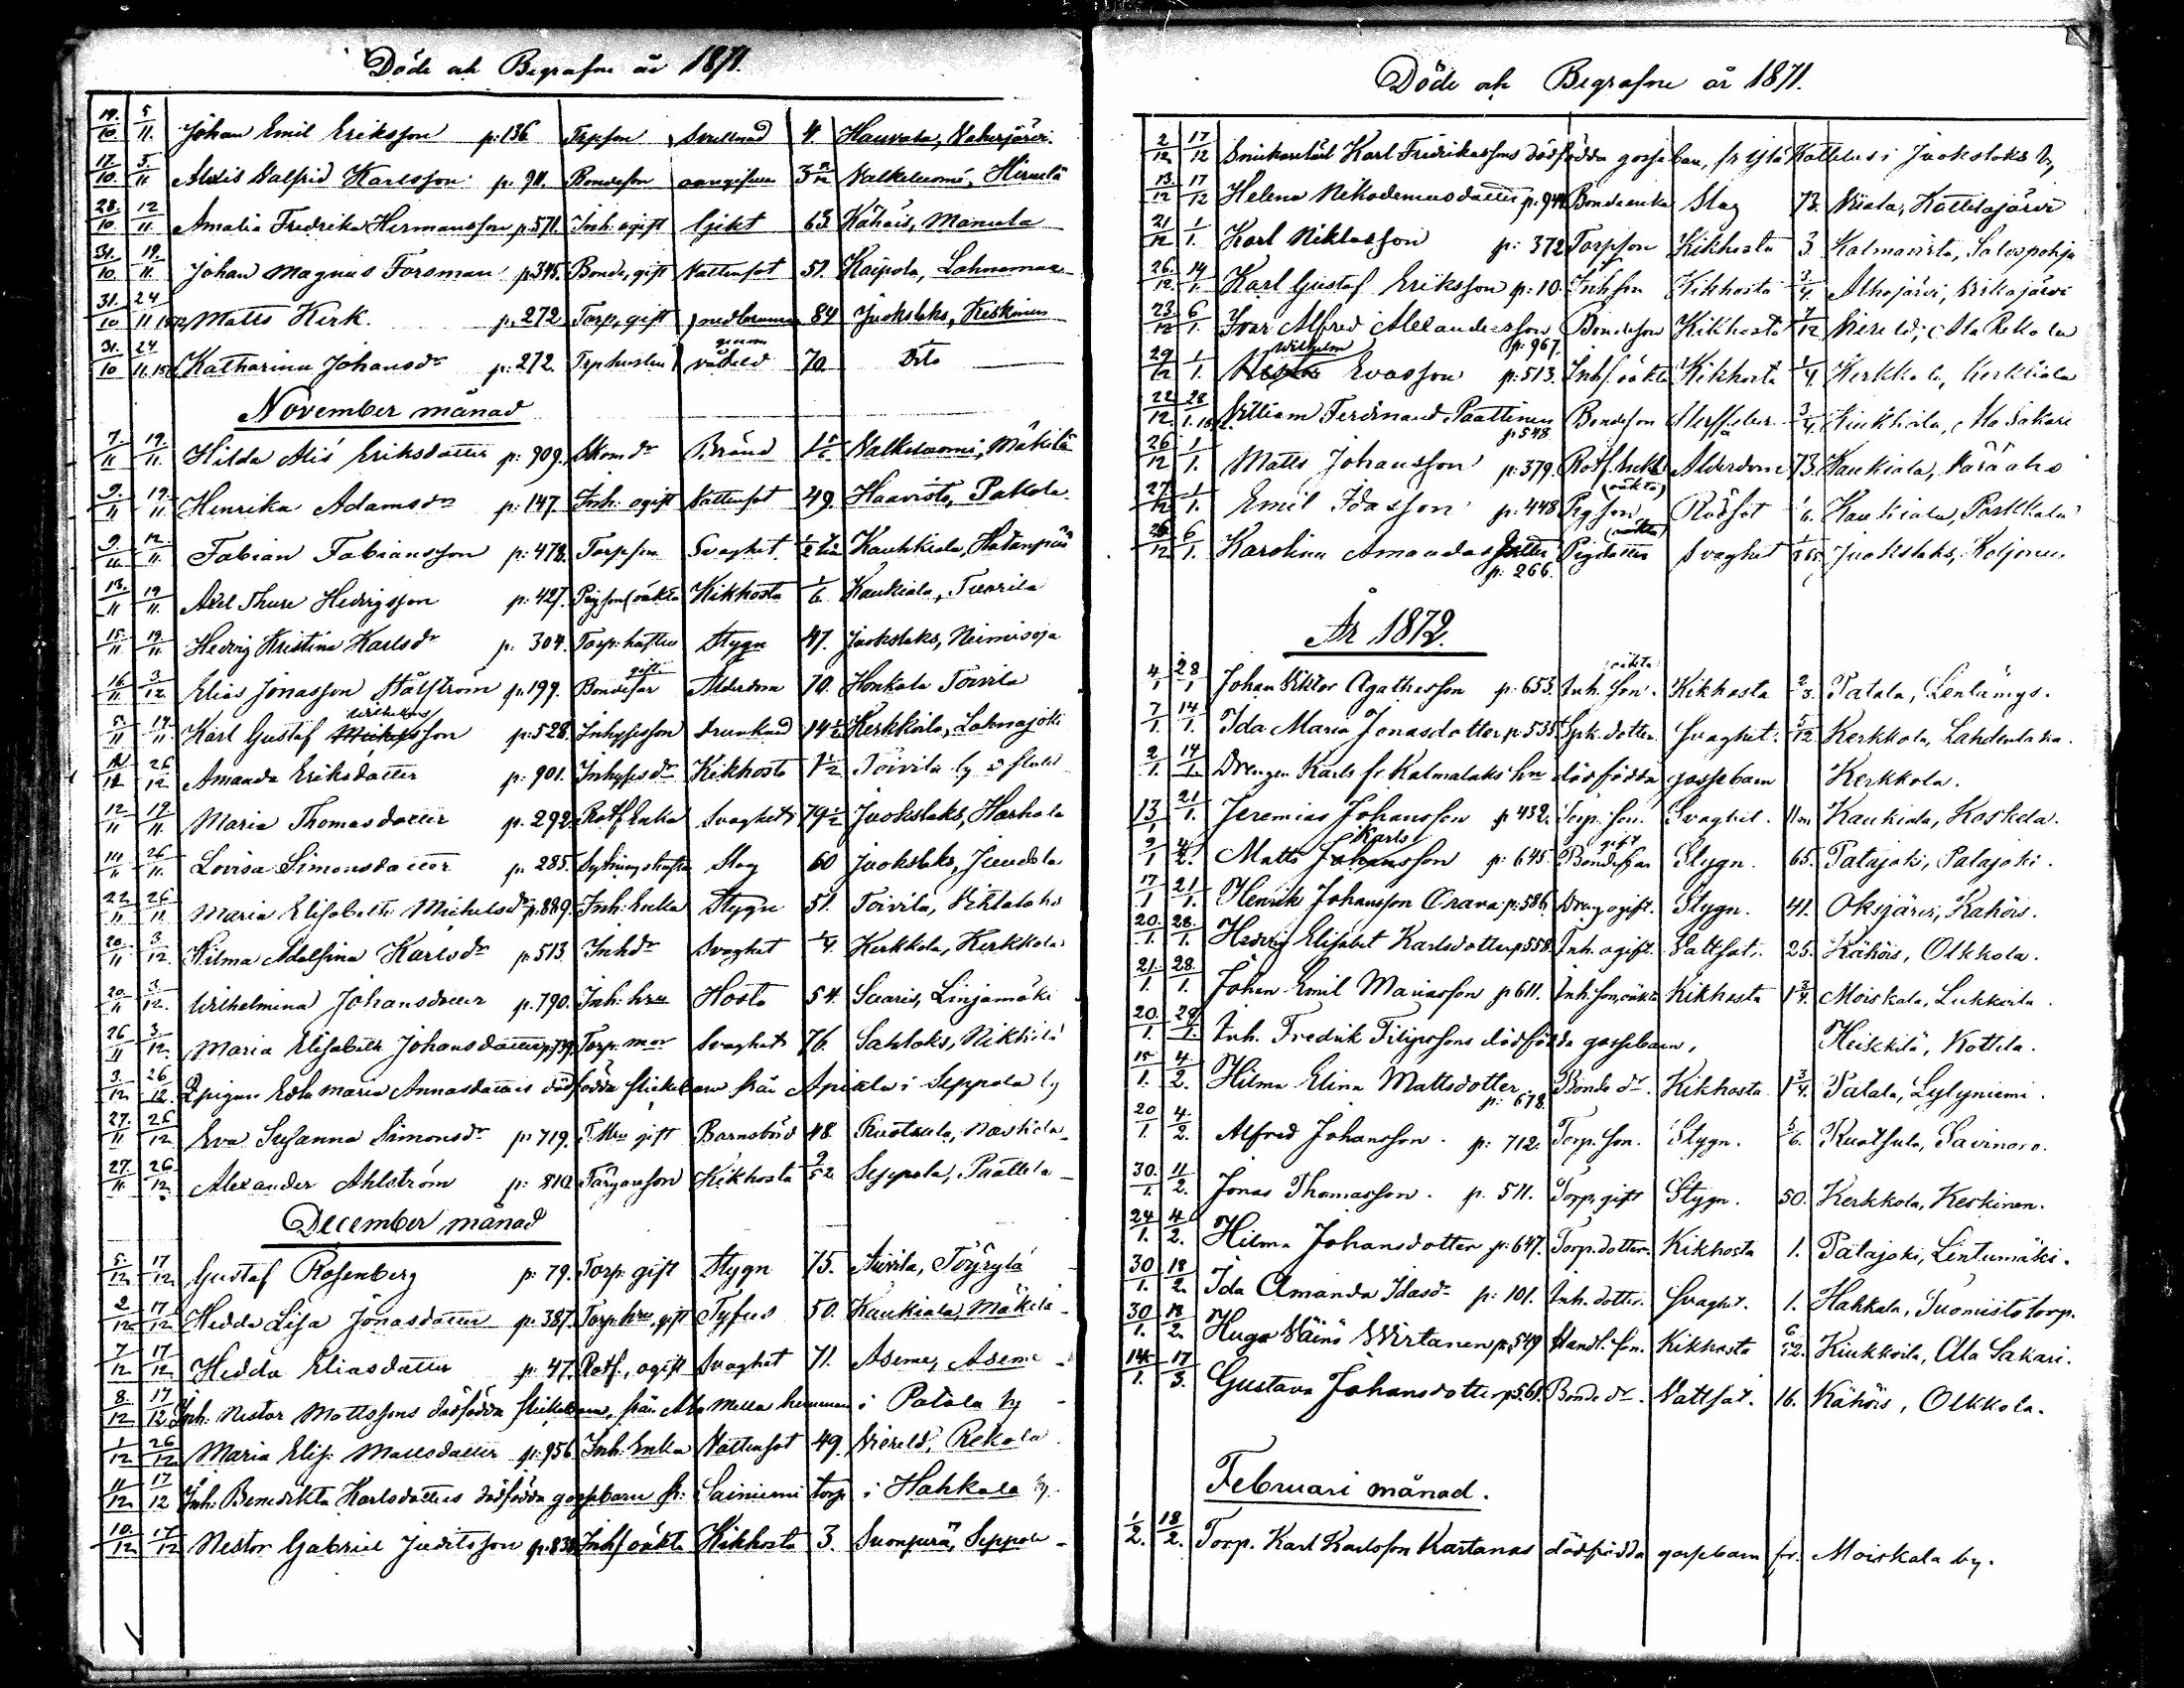 Döde och Begrafne år 1871.
19/10 5/11 Johan Emil Eriksson p: 136 Trpson Svullnad 4. Hauvala, Vahterjärvi.
17/10 5/11 Alexis Valfrid Karlsson p: 911. Bondeson 3 Valkeluomi, Hirvelä
28/10 12/11 Amalia Fredrika Hermansson p: 571. Inh: ogift Gikt 63. Kähöis, Manula
31/10 19/11 Johan Magnus Forsman p: 345. Bonde, gift Vattusot 51. Kaipola, Lahnamaa
31/10 24/11 Matts Kerk. p: 272 Torp, gift 84 Juokslaks, Keskinen
31/10 24/11 Katharina Johansdr p: 272. Trphustru genom vådeld 70. Dito
November månad
7/11 19/11 Hilda Alis Eriksdotter p: 909. Skomdr Bränd Valkeluomi, Mäkilä
9/11 19/11 Henrika Adamsdr p: 147. Inh: ogift Vattusot 49. Haavisto, Pakkola.
9/11 12/11 Fabian Fabiansson p: 472. Torpson Svaghet Kauhkiala, Hatanpää
13/11 19/11 Axel Thure Hedvigsson p: 427. Pigson (oäkta Kikhosta 1/6 Kaukiala, Tuorila
15/11 19/11 Hedvig Kristina Karlsdr p: 304. Torp: hustru Stygn 47. Juokslaks, Niemisoja
16/11 3/12 Elias Jonasson Stålström p: 199. Bondefar gift Ålderdom 70. Honkola Toivila
5/11 19/11 Karl Gustaf Wilhelmsson p: 528. Inhyfisson Drunknad 14 1/2 Kerkkola, Lahnajoki
26/12 Amanda Eriksdotter p: 901. Inhyssdr Kikhosta 1 1/2 Toivila by
12/11 19/11 Maria Thomasdotter p. 292. Rotf. Enka Svaghet 79 1/2 Juokslaks, Harhala
14/11 26/11 Lovisa Simonsdotter p: 285. Sytningshustru Slag 60 Juokslaks, Juudola
22/11 26/11 Maria Elisabeth Michelsdr p: 889. Inh: Enka Stygn 51. Toivila, Viktalaks
20/11 3/12 Hilma Adolfina Karlsdr p: 513. Inhdr Svaghet 1/4. Kerkkola, Kerkkola
20/11 3/12 Wilhelmina Johansdotter p: 790. Inh: hru Hosta 54. Saaris, Linjamäki
26/11 3/12 Maria Elisabeth Johansdotter p: 739. Torp: mor Svaghet 76. Sahlaks, Nikkilä
3/12 26/12 Pigan Eda Maria Annasdotters dödfödda flickebarn från Apiala i Seppola by
27/11 26/12 Eva Susanna Simonsdr p: 719. T. Hru gift Barnsbörd 48. Ruotsula, Naskila
27/11 26/12 Alexander Ahlström p: 810. Färgareson Kikhosta 9/52 Seppola, Paattela
December månad
5/12 17/12 Gustaf Rosenberg p: 79. Torp: gift Stygn 75. Aivila, Töyrylä
2/12 17/12 Hedda Lisa Jonasdotter p: 387. Torp: hru, gift Tyfus 50. Kaukiala, Mäkelä
7/12 17/12 Hedda Eliasdotter p: 47. Rotf., ogift Svaghet 71. Aseme, Aseme
8/12 17/12 Inh: Nestor Mattssons dödfödda flickebarn, från Ala Mella hemman i Patala by
1/12 26/12 Maria Elis: Mattsdotter p: 956 Inh: Enka Vattusot 49. Viereld, Rekola
11/12 17/12 Inh: Benedikta Karlsdotters dödfödda gossebarn fr: Sainiemi torp i Hahkala by.
10/12 17/12 Nestor Gabriel Juditsson p: 838 Inhs oäkta Kikhosta 3. Suonperä, Seppola
Döde och Begrafne år 1871.
2/12 17/12 Snickarelärl Karl Fredrikssons dödfödda gossebarn, fr Ylä Kattelus i Juokslaks by
13/12 17/12 Helena Nikodemusdotter p: 944 Bondeenka Slag 73. Viala, Kattilajärvi
21/12 1/1. Karl Niklasson p: 372 Torpson Kikhosta 3. Kalmavirta, Salospohja
26/12 14/1. Karl Gustaf Eriksson p: 10. Inhson Kikhosta 3/4. Alhojärvi, Vilkajärvi
23/12 6/1. Ivar Alfred Alexandersson p: 967. Bondeson Kikhosta 7/12 Viereld, Ala Rekola
29/12 1/1. Wilhelm Evasson p: 513. Inhs. oäkta Kikhosta 1/4. Kerkkola, Kerkkola
22/12 28/1. William Ferdinand Paattinen p: 548. Bondeson 3/4. Kiukkoila, Ala Sakari
26/12 1/1. Matts Johansson p: 379. Rotf. Enkl. Ålderdom 73. Kaukiala, Vääräaho
27/12 1/1. Emil Idasson p: 448 Pigson (oäkta) Rödsot 1/6. Kaukiala, Parkkala
26/12 6/1. Karolina Amandasdotter p: 266. Pigdotter (oäkta) Svaghet Juokslaks, Koljonen
År 1872.
4/1 28/1 Johan Viktor Agathesson p: 653. Inh. son. oäkta Kikhosta 2/3. Patala, Lentämys.
7/1. 14/1. Ida Maria Jonasdotter p: 535. dotter Svaghet. 5/12 Kerkkola, Lahdentaka.
2/1. 14/1. Drengen Karls fr. Kalmalaks hm dödfödda gossebarn Kerkkola.
13/1 21/1. Jeremias Johansson p: 432. Torp. son. Svaghet. 11 m Kaukiala, Koskela.
9/1 4/2. Matts Karlsson p: 645. Bondefar gift Stygn. 65. Patajoki, Patajoki.
17/1 21/1. Henrik Johansson Orava p: 586. Dreng ogift. Stygn. 41. Oksjärvi, Kähöis.
20/1. 28/1. Hedvig Elisabet Karlsdotter p: 558. Inh. ogift. Vattsot. 25. Kähöis, Olkkola.
21/1. 28/1. Johan Emil Mariasson p: 611. Inh. son, oäkta Kikhosta 1 3/4. Moiskala, Lukkoila.
20/1. 28/1. Inh. Fredrik Filipssons dödfödda gossebarn, Heikkilä, Kottila.
15/1. 4/2. Hilma Elina Mattsdotter. p: 678. Bonde dr. Kikhosta 1 3/4. Patala, Lylyniemi.
20/1. 4/2. Alfred Johansson. p: 712. Torp. son. Stygn. 5/6. Ruotsula, Savinoro.
30/1. 11/2. Jonas Thomasson. p: 511. Torp. gift Stygn. 50. Kerkkola, Keskinen.
24/1. 4/2. Hilma Johansdotter p: 647. Torp. dotter. Kikhosta 1. Patajoki, Lintumäki.
30/1. 18/2. Ida Amanda Idasdr p: 101. Inh. dotter. Svaghet. 1. Hahkala, Tuomisto torp.
30/1. 18/2. Hugo Väinö Wirtanen p: 549 Handl. son. Kikhosta 6/12. Kiukkoila, Ala Sakari.
14/1. 17/3. Gustava Johansdotter p: 561. Bonde dr. Vattsot. 16. Kähöis, Olkkola.
Februari månad.
1/2. 18/2. Torp. Karl Karlsson Kartanas dödfödda gossebarn fr. Moiskala by.